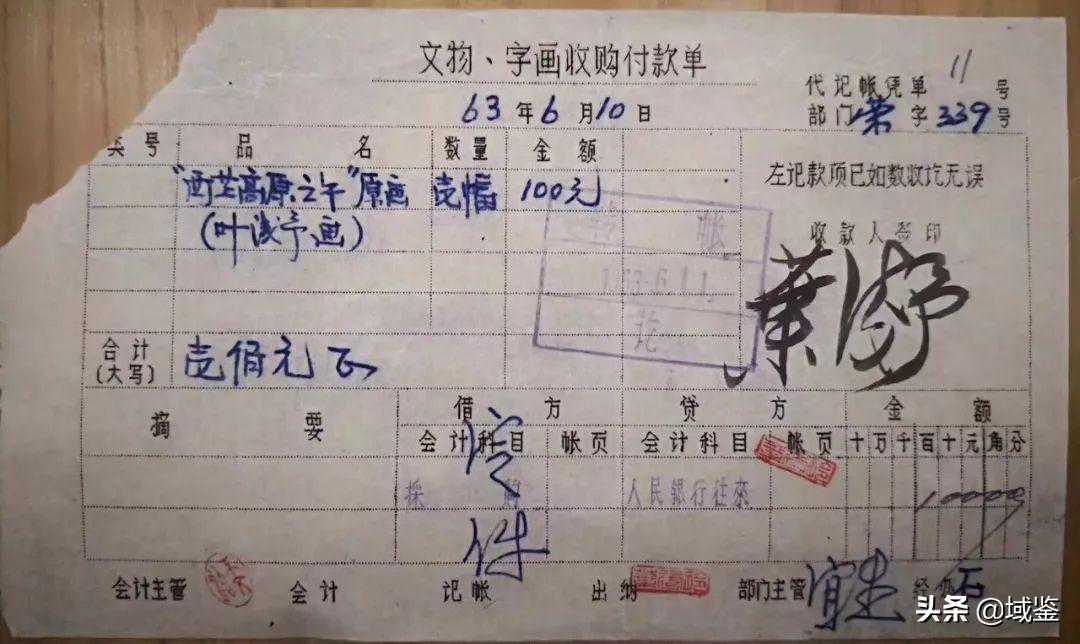 文物、字画收购付款单
11
代记帐凭单 号
63年6月10日
部门荣字339号
类号 品名 数量 金额
左记款项已如数收讫无误
"西芷高原之午"原画 壱幅 100元
(叶浅予画)
收款人签印
葉浅予
帐
讫
合计
(大写)
壱佰元正
摘要 借方 贷方 金额
会计科目 帐页 会计科目 帐页 十万千百十元角分
採购 人民銀行往來 10000
会计主管 会计 记帐 出纳 部门主管 经
头条 @域鉴